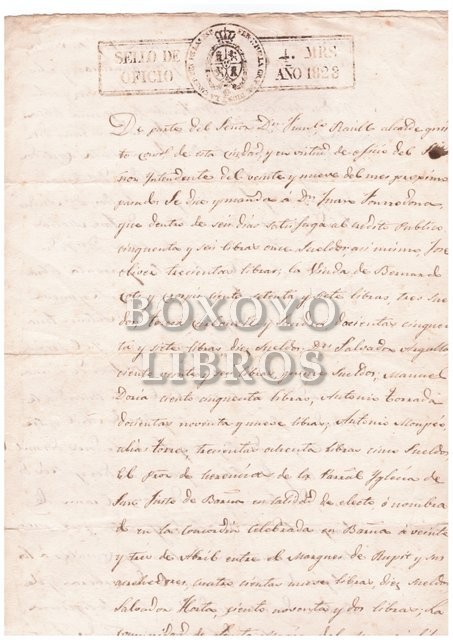 SELLO DE OFICIO
4. MRS. AÑO 1823
De parte del Señor Dn. Franco. Raüll alcalde quin
to de esta Ciudad y en virtud de oficio del Se
ñor Intendente del veinte y nueve del mes proximo
pasado Se dice y manda á Dn. Juan
que dentro de seis dias satisfaga al credito Publico
cinquenta y seis libras once Sueldos asimismo, Jose
Oliver trecientas libras; la Viuda de Bernardo
y ciento setenta y siete libras, tres Suel
docientas cinquen
ta y siete libras diez Sueldos, Dn. Salvador
ciento libras, Sueldos, Manuel
Doria ciento cinquenta libras, Antonio Torrada
docientas noventa y nueve libras, Antonio
Torres, trecientas ochenta libras cinco Sueldos
El de la Parral Yglesia de
San Justo de Barna en calidad de electo ó nombra
do en la Concordia celebrada en Barna á veinte
y tres de Abril entre el Marques de Rupit y sus
acrehedores, cuatro cientas nueve libras, diez Sueldos
Salvador Horta, ciento noventa y dos libras; La
comunidad de
BOXOYO
LIBROS